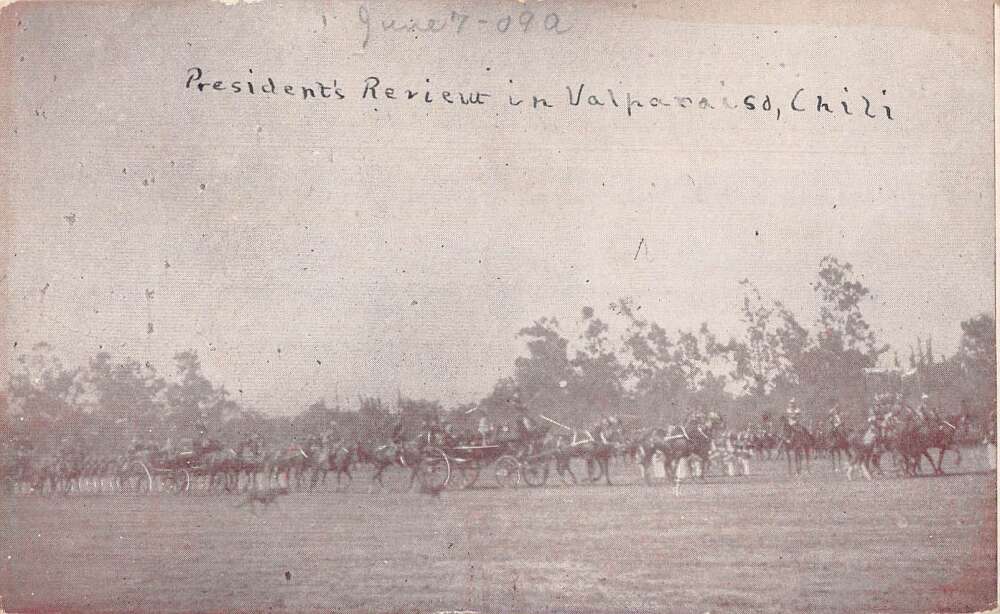 June 7-09a
President's Review in Valparaiso, Chili